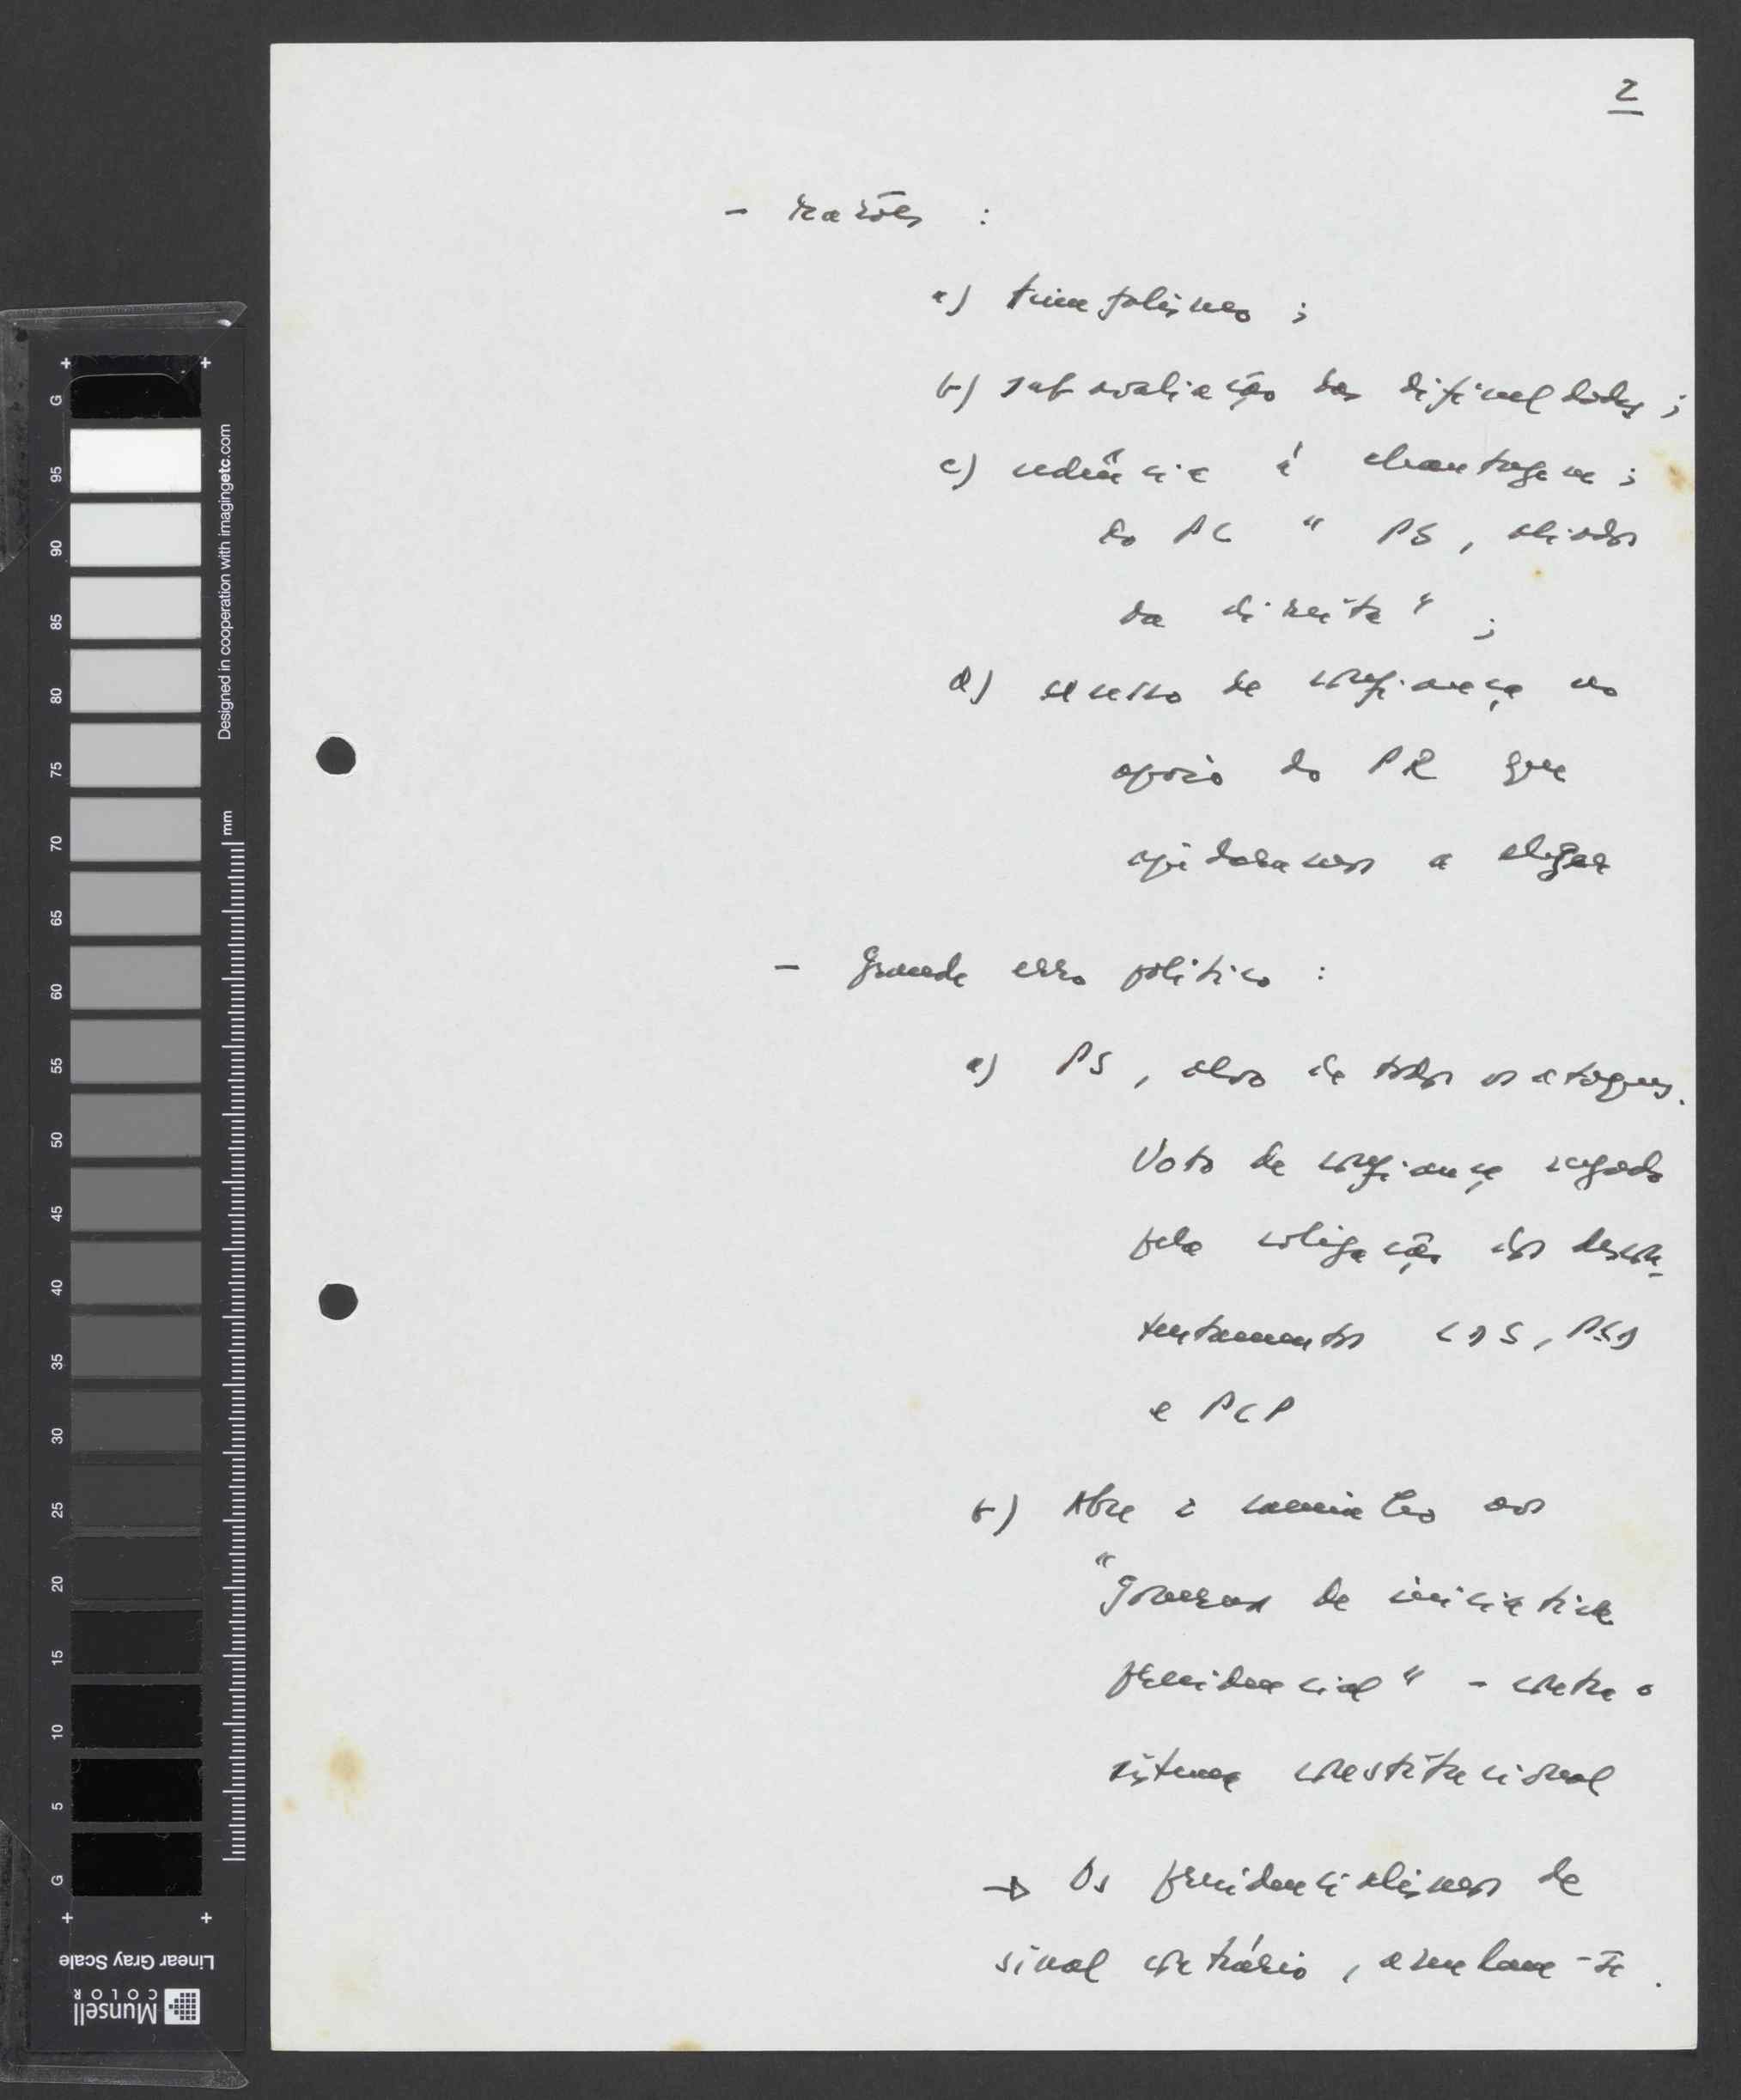 2
- razões :
a) triunfalismo ;
b) subavaliação das dificuldades ;
c) cedência à chantagem ;
do PC " PS, aliados
da direita " ;
d) excesso de confiança no
apoio do PR que
ajudaramos a eleger
- Grande erro político :
a) PS, alvo de todos os ataques.
Voto de confiança negado
pela coligação dos descon-
tentamentos CDS, PSD
e PCP
b) Abre o caminho aos
"governos de iniciativa
presidencial" - contra o
sistema constitucional
→ Os presidencialismos de
sinal contrário, anulam-se.
G
95
90
85
80
75
70
65
60
55
50
45
40
35
30
25
20
15
10
5
G
Designed in cooperation with imagingetc.com
mm
Linear Gray Scale
Munsell
COLOR